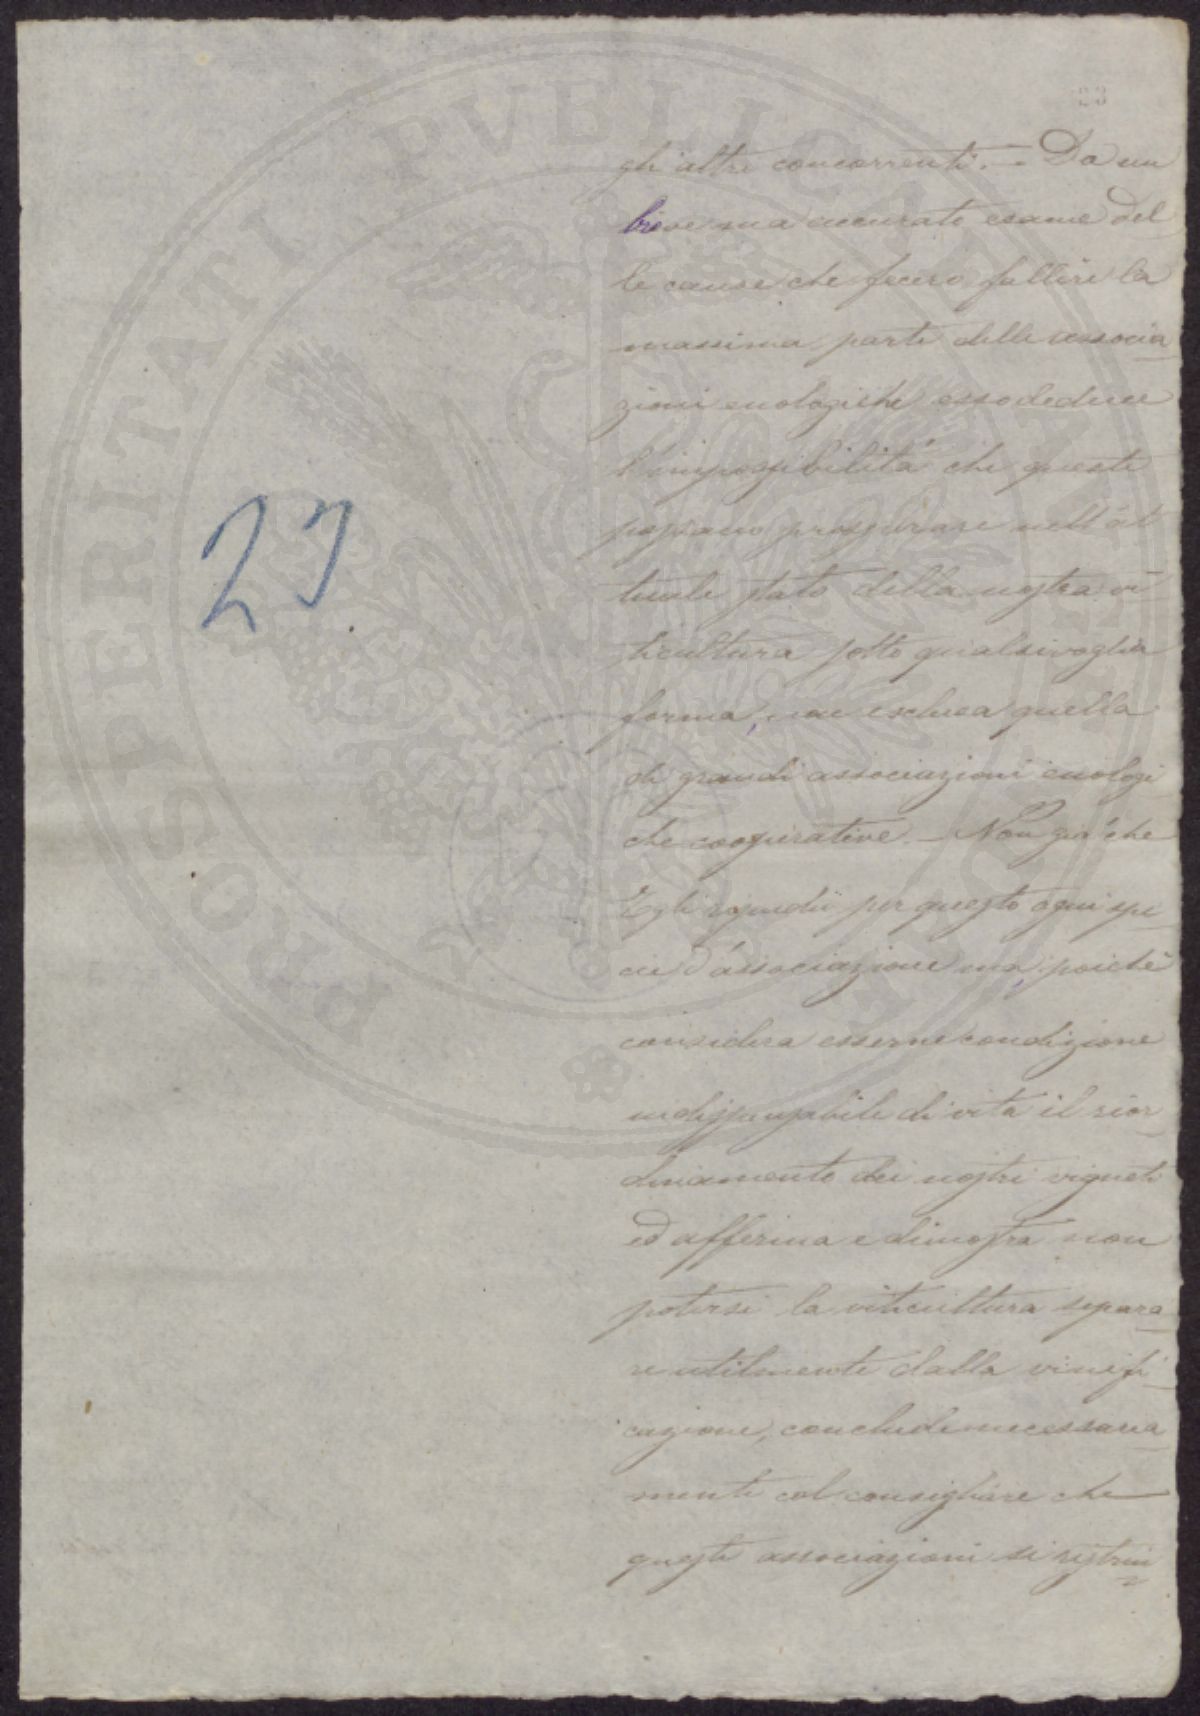 23
gli altri concorrenti. — Da un
breve ma accurato esame del
le cause che fecero fallire la
massima parte delle associa
zioni enologiche esso deduce
l'impossibilità che queste
possano prosperare nell'at
tuale stato della nostra vi
ticultura sotto qualsivoglia
forma, non esclusa quella
di grandi associazioni enologi
che cooperative. — Non già che
Egli ripudii per questo ogni spe
cie d'associazione ma, poichè
considera esserne condizione
indispensabile di vita il rior
dinamento dei nostri vigneti
ed afferma e dimostra non
potersi la viticultura separa
re utilmente dalla vinifi
cazione, conclude necessaria
mente col consigliare che
queste associazioni si restrin
23
PROSPERITATI PVBLICAE